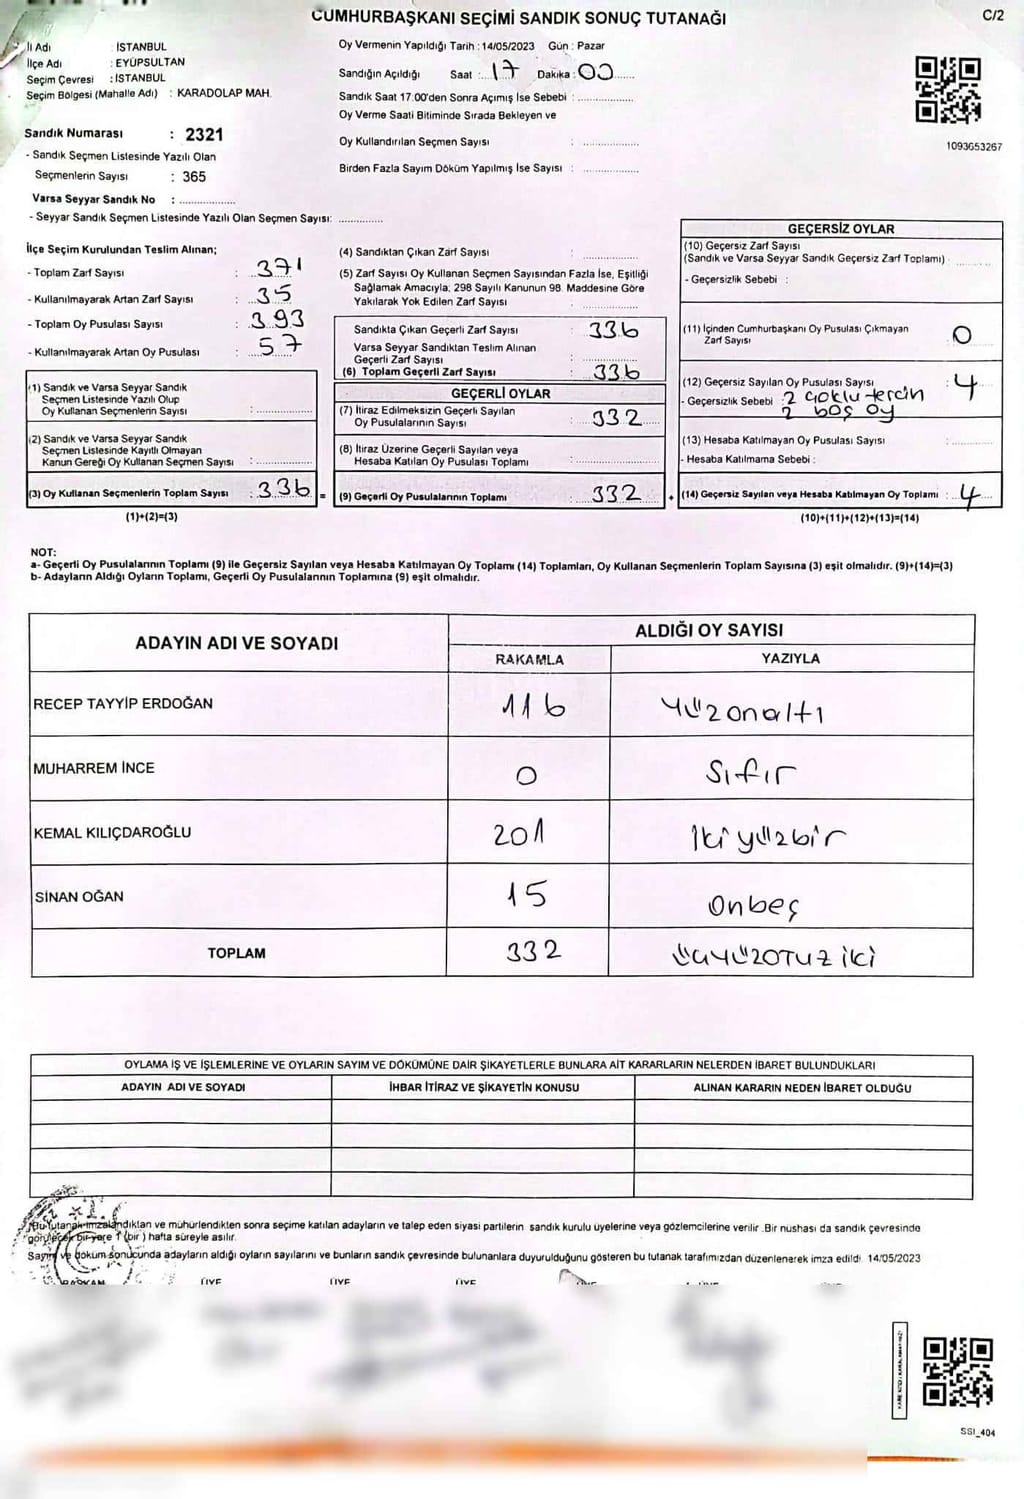 CUMHURBAŞKANI SEÇİMİ SANDIK SONUÇ TUTANAĞI
C/2
İli Adı : İSTANBUL
İlçe Adı : EYÜPSULTAN
Seçim Çevresi : İSTANBUL
Seçim Bölgesi (Mahalle Adı) : KARADOLAP MAH.
Sandık Numarası : 2321
- Sandık Seçmen Listesinde Yazılı Olan
Seçmenlerin Sayısı : 365
Varsa Seyyar Sandık No : ..................
- Seyyar Sandık Seçmen Listesinde Yazılı Olan Seçmen Sayısı: ..............
Oy Vermenin Yapıldığı Tarih : 14/05/2023 Gün : Pazar
Sandığın Açıldığı Saat : 17 Dakika : 00
Sandık Saat 17.00'den Sonra Açımış İse Sebebi : ..................
Oy Verme Saati Bitiminde Sırada Bekleyen ve
Oy Kullandırılan Seçmen Sayısı : ..................
Birden Fazla Sayım Döküm Yapılmış İse Sayısı : ..................
1093653267
İlçe Seçim Kurulundan Teslim Alınan;
- Toplam Zarf Sayısı : 371
- Kullanılmayarak Artan Zarf Sayısı : 35
- Toplam Oy Pusulası Sayısı : 393
- Kullanılmayarak Artan Oy Pusulası : 57
(1) Sandık ve Varsa Seyyar Sandık
Seçmen Listesinde Yazılı Olup
Oy Kullanan Seçmenlerin Sayısı : ..................
(2) Sandık ve Varsa Seyyar Sandık
Seçmen Listesinde Kayıtlı Olmayan
Kanun Gereği Oy Kullanan Seçmen Sayısı : ..................
(3) Oy Kullanan Seçmenlerin Toplam Sayısı : 336 =
(1)+(2)=(3)
(4) Sandıktan Çıkan Zarf Sayısı : ..................
(5) Zarf Sayısı Oy Kullanan Seçmen Sayısından Fazla İse, Eşitliği
Sağlamak Amacıyla; 298 Sayılı Kanunun 98. Maddesine Göre
Yakılarak Yok Edilen Zarf Sayısı : ..................
Sandıkta Çıkan Geçerli Zarf Sayısı : 336
Varsa Seyyar Sandıktan Teslim Alınan
Geçerli Zarf Sayısı : ..................
(6) Toplam Geçerli Zarf Sayısı : 336
GEÇERLİ OYLAR
(7) İtiraz Edilmeksizin Geçerli Sayılan
Oy Pusulalarının Sayısı : 332
(8) İtiraz Üzerine Geçerli Sayılan veya
Hesaba Katılan Oy Pusulası Toplamı : ..................
(9) Geçerli Oy Pusulalarının Toplamı : 332 +
GEÇERSİZ OYLAR
(10) Geçersiz Zarf Sayısı
(Sandık ve Varsa Seyyar Sandık Geçersiz Zarf Toplamı) : ..........
- Geçersizlik Sebebi :
(11) İçinden Cumhurbaşkanı Oy Pusulası Çıkmayan
Zarf Sayısı : 0
(12) Geçersiz Sayılan Oy Pusulası Sayısı : 4
- Geçersizlik Sebebi : 2 çoklu tercih
2 boş oy
(13) Hesaba Katılmayan Oy Pusulası Sayısı : ..........
- Hesaba Katılmama Sebebi :
(14) Geçersiz Sayılan veya Hesaba Katılmayan Oy Toplamı : 4
(10)+(11)+(12)+(13)=(14)
NOT:
a- Geçerli Oy Pusulalarının Toplamı (9) ile Geçersiz Sayılan veya Hesaba Katılmayan Oy Toplamı (14) Toplamları, Oy Kullanan Seçmenlerin Toplam Sayısına (3) eşit olmalıdır. (9)+(14)=(3)
b- Adayların Aldığı Oyların Toplamı, Geçerli Oy Pusulalarının Toplamına (9) eşit olmalıdır.
ADAYIN ADI VE SOYADI ALDIĞI OY SAYISI
RAKAMLA YAZIYLA
RECEP TAYYİP ERDOĞAN 116 Yüzonaltı
MUHARREM İNCE 0 Sıfır
KEMAL KILIÇDAROĞLU 201 İkiyüzbir
SİNAN OĞAN 15 Onbeş
TOPLAM 332 ÜçYÜZOTUZiki
OYLAMA İŞ VE İŞLEMLERİNE VE OYLARIN SAYIM VE DÖKÜMÜNE DAİR ŞİKAYETLERLE BUNLARA AİT KARARLARIN NELERDEN İBARET BULUNDUKLARI
ADAYIN ADI VE SOYADI İHBAR İTİRAZ VE ŞİKAYETİN KONUSU ALINAN KARARIN NEDEN İBARET OLDUĞU
Bu tutanak imzalandıktan ve mühürlendikten sonra seçime katılan adayların ve talep eden siyasi partilerin sandık kurulu üyelerine veya gözlemcilerine verilir. Bir nüshası da sandık çevresinde
görülecek bir yere 1 (bir) hafta süreyle asılır.
Sayım ve döküm sonucunda adayların aldığı oyların sayılarını ve bunların sandık çevresinde bulunanlara duyurulduğunu gösteren bu tutanak tarafımızdan düzenlenerek imza edildi. 14/05/2023
BAŞKAN ÜYE ÜYE ÜYE
SSI_404